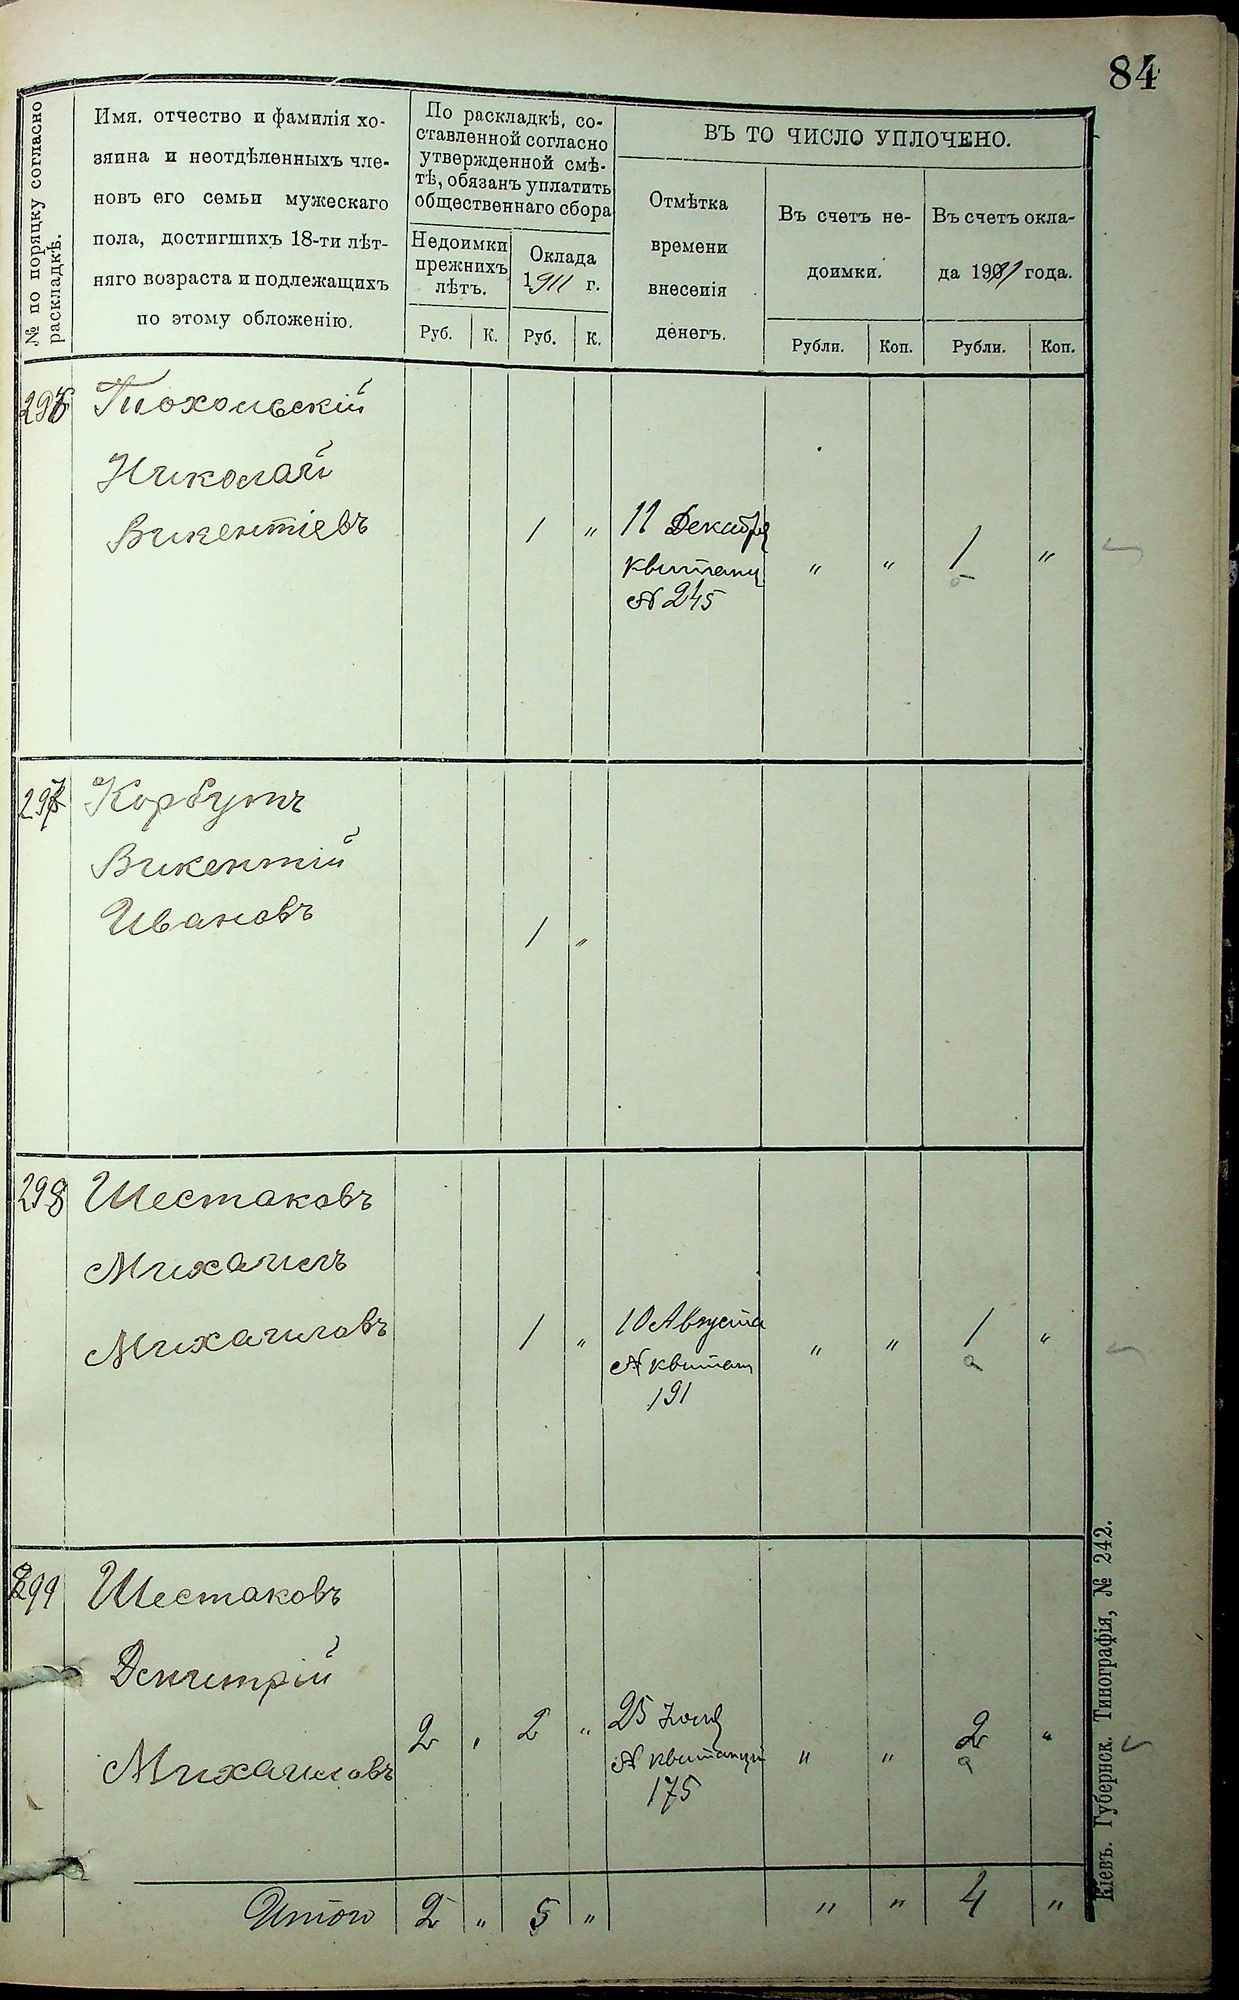 84
№ по порядку согласно раскладкѣ.
Имя, отчество и фамилія хо-
зяина и неотдѣленныхъ чле-
новъ его семьи мужескаго
пола, достигшихъ 18-ти лѣт-
няго возраста и подлежащихъ
по этому обложенію.
По раскладкѣ, со-
ставленной согласно
утвержденной смѣ-
тѣ, обязанъ уплатить
общественнаго сбора
Недоимки
прежнихъ
лѣтъ.
Оклада
1911 г.
Руб. К. Руб. К.
ВЪ ТО ЧИСЛО УПЛОЧЕНО.
Отмѣтка
времени
внесенія
денегъ.
Въ счетъ не-
доимки.
Въ счетъ окла-
да 1911 года.
Рубли. Коп. Рубли. Коп.
296
Николай
Викентіевъ
1 " 11 Декабря " " 1 "
квитанц
№ 245
297 Корбутъ
Викентій
Ивановъ
1 "
298 Шестаковъ
Михаилъ
Михаиловъ
1 " 10 Августа " " 1 "
№ квитан
191
299 Шестаковъ
Дмитрій
Михаиловъ
2 " 2 " 25 " " 2 "
№ квитанціи
175
Итого 2 " 5 " " " 4 "
Кіевъ. Губернск. Типографія, № 242.